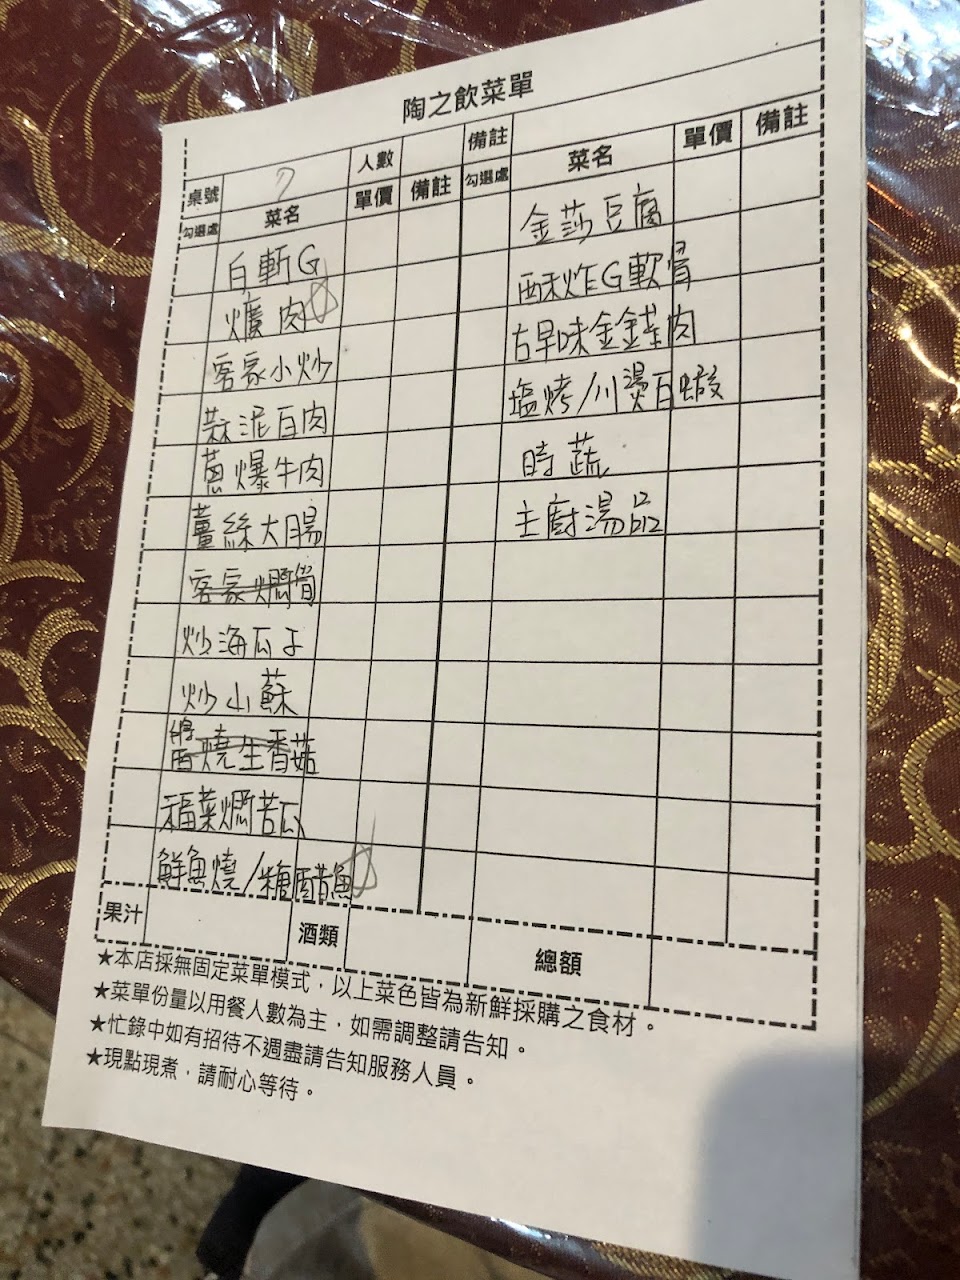 陶之飲菜單
桌號 7 人數 備註 菜名 單價 備註
勾選處 菜名 單價 備註 勾選處
白斬G
爌肉
客家小炒
蒜泥白肉
蔥爆牛肉
薑絲大腸
客家燜筍
炒海瓜子
炒山蘇
醬燒生香菇
福菜燜苦瓜
鮮魚燒/糖醋魚
金莎豆腐
酥炸G軟骨
古早味金錢肉
塩烤/川燙白蝦
時蔬
主廚湯品
果汁 酒類 總額
★本店採無固定菜單模式，以上菜色皆為新鮮採購之食材。
★菜單份量以用餐人數為主，如需調整請告知。
★忙錄中如有招待不週盡請告知服務人員。
★現點現煮，請耐心等待。